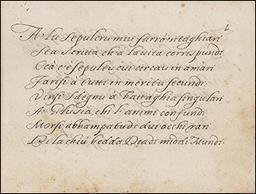 A lu Sepulcru miu farrò ntaghiari
Sta Scritta, chi a la vita corrispundi
Ccà c'è sepultu cui circau in amari
Farisi a tutti in meritu secundi
Vinsi Sdegnu a battaghia singulari
A Gilusia, chi l'animi confundi
Morsi abbampatu di dui occhi rari
Di la chiù bedda Dea di midai Mundi